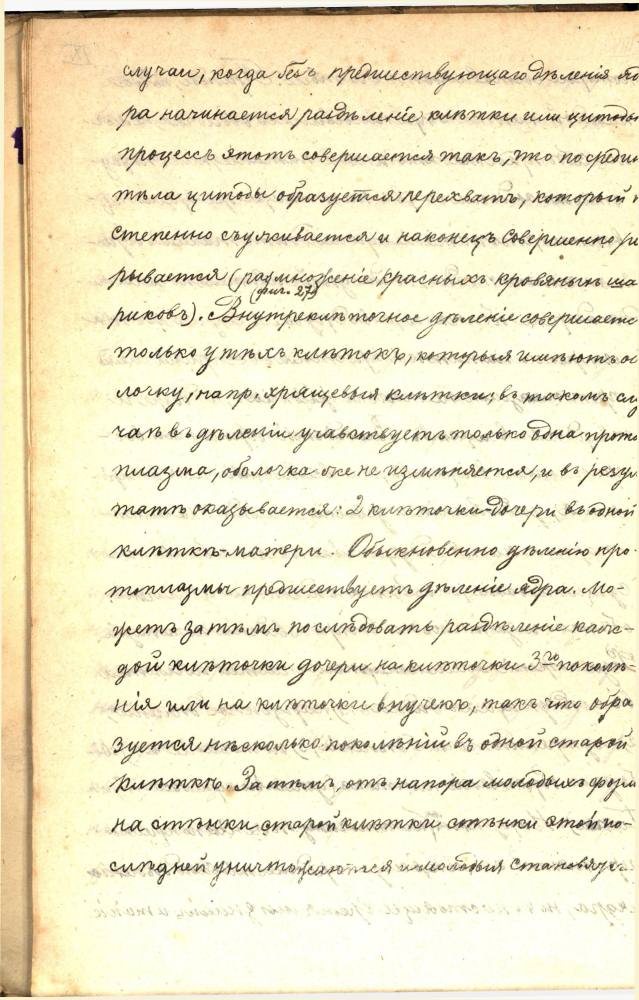 случаи, когда безъ предшествующаго дѣленія яд
ра начинается раздѣленіе клѣтки или цитоды
процессъ этотъ совершается такъ, что посредин
тѣла цитоды образуется перехватъ, который п
степенно съуживается и наконецъ совершенно
рывается (размноженіе красныхъ кровяныхъ ша
(фиг. 27)
риковъ). Внутреклѣточное дѣленіе совершаетс
только у тѣхъ клѣтокъ, которыя имѣютъ об
лочку, напр. хрящевыя клѣтки; въ такомъ слу
чаѣ въ дѣленіи учавствуетъ только одна прото
плазма, оболочка же не измѣняется, и въ резул
татѣ оказывается: 2 клѣточки-дочери въ одной
клѣткѣ-матери. Обыкновенно дѣленію про-
топлазмы предшествуетъ дѣленіе ядра. Мо-
жетъ затѣмъ послѣдовать раздѣленіе каж-
дой клѣточки дочери на клѣточки 3го поколѣ-
нія или на клѣточки внучекъ, такъ что обра
зуется нѣсколько поколѣній въ одной старой
клѣткѣ. Затѣмъ, отъ напора молодыхъ форм
на стѣнки старой клѣтки стѣнки этой по-
слѣдней уничтожаются и молодыя становятся